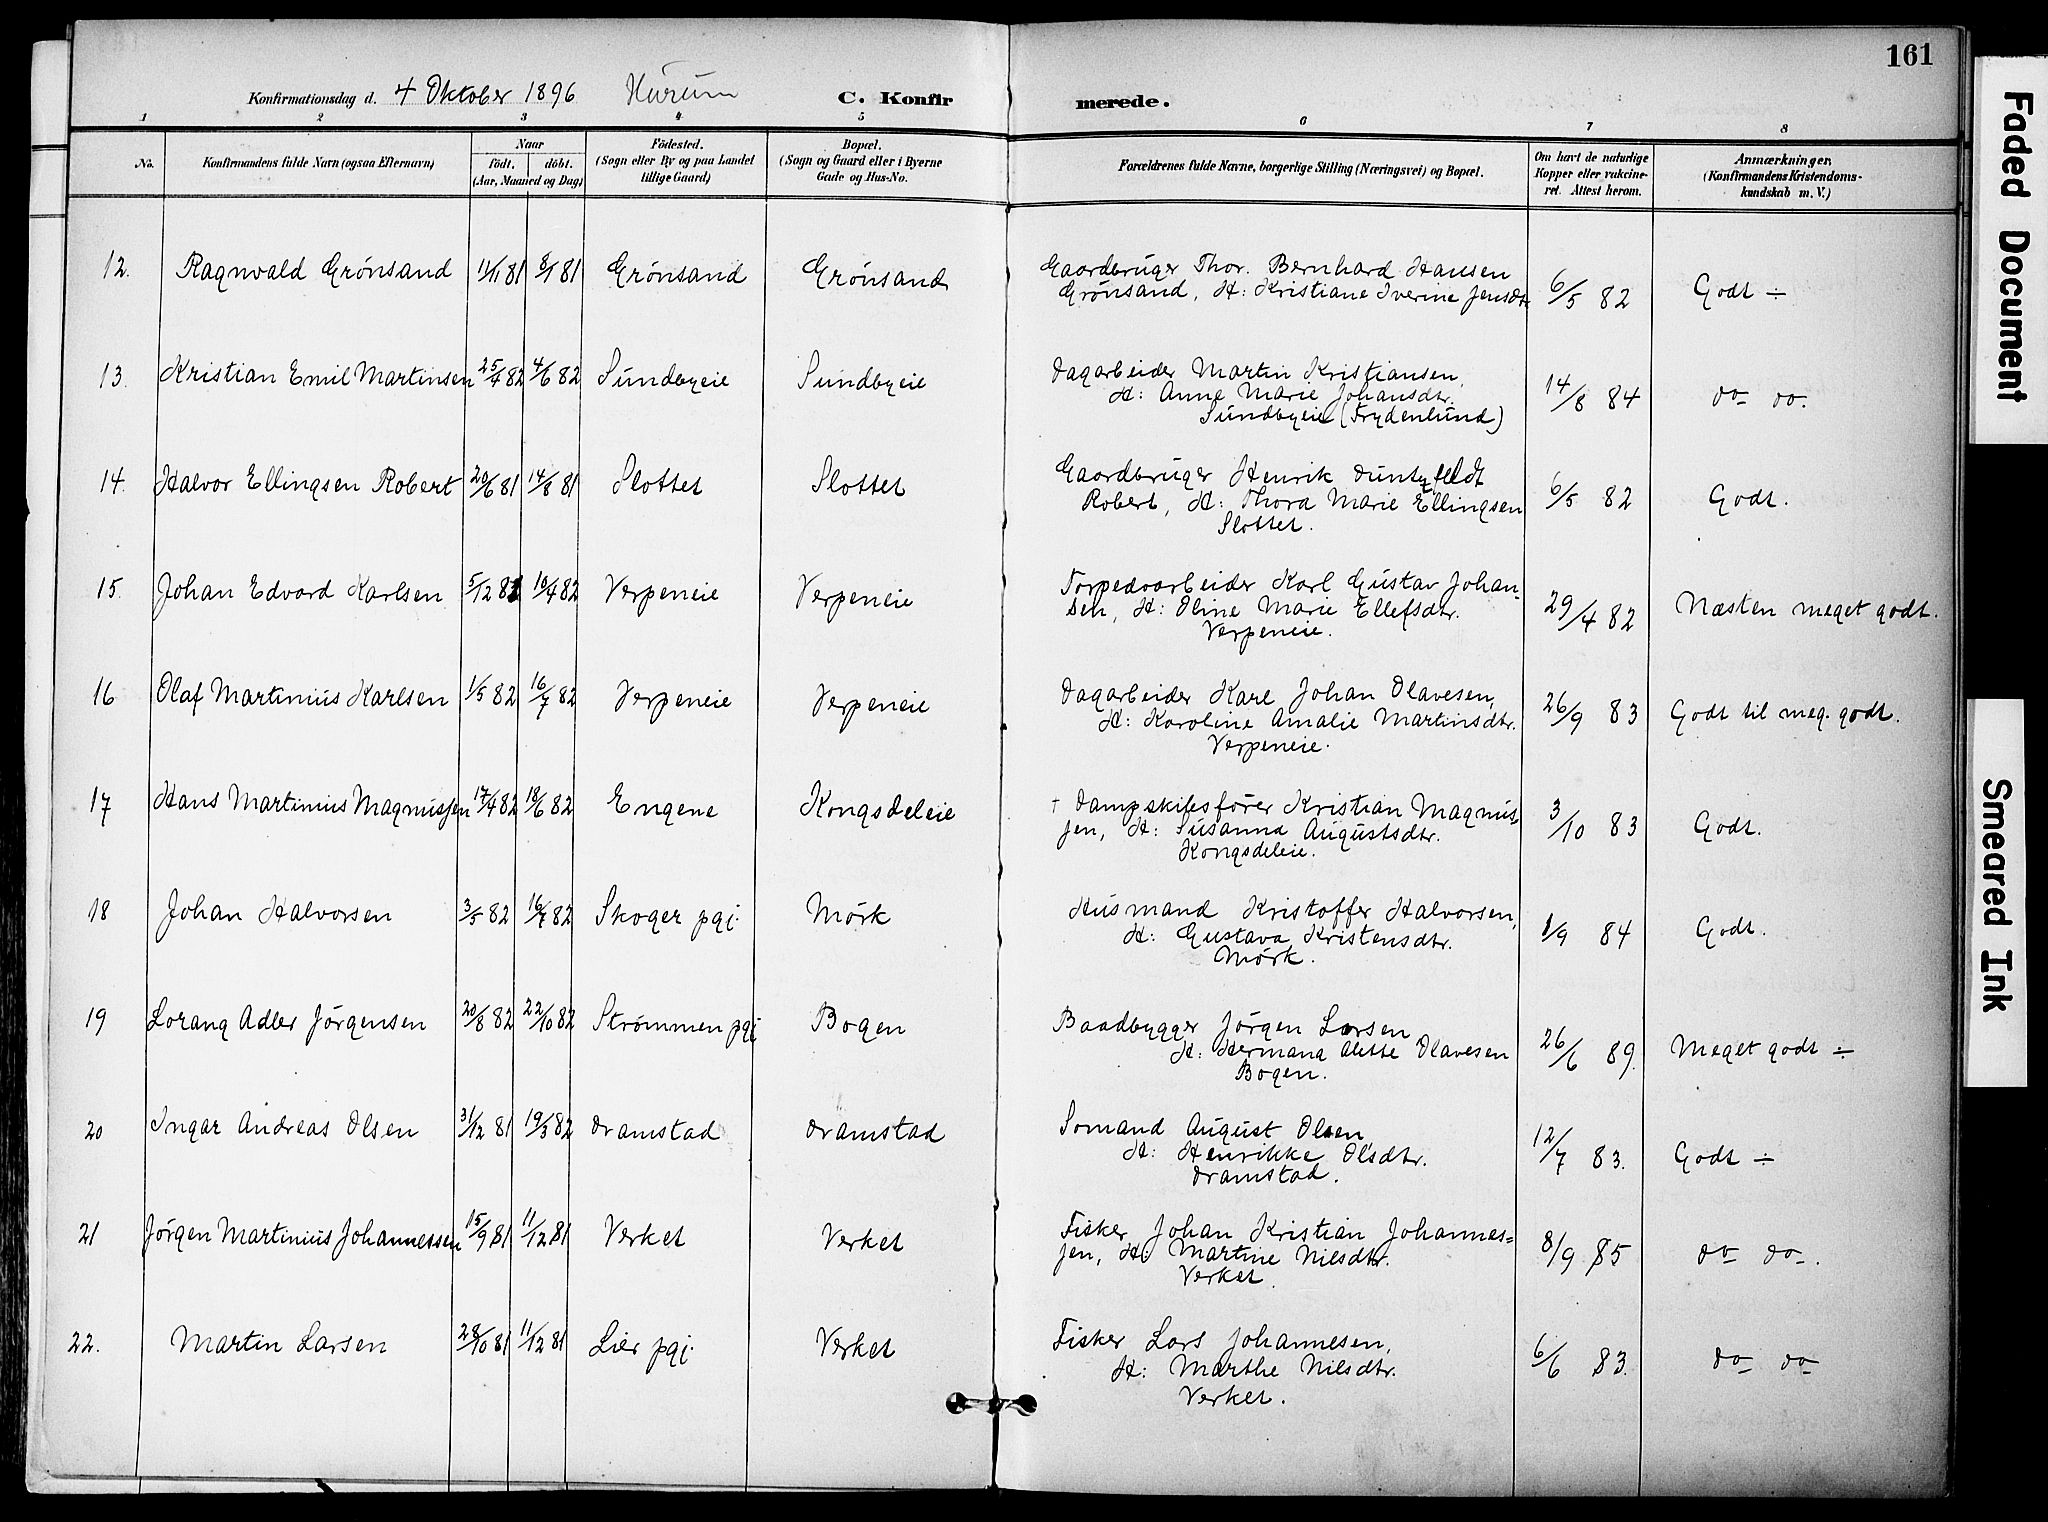 161
Konfirmationsdag d. 4 Oktober 1896 Hurum C. Konfirmerede.
1 2 3 4 5 6 7 8
No. Konfirmandens fulde Navn (ogsaa Efternavn) Naar födt, döbt. (Aar, Maaned og Dag) Födested. (Sogn eller By og paa Landet tillige Gaard) Bopæl. (Sogn og Gaard eller i Byerne Gade og Hus-No. Forældrenes fulde Navne, borgerlige Stilling (Næringsvei) og Bopæl. Om havt de naturlige Kopper eller vakcineret. Attest herom. Anmærkninger. (Konfirmandens Kristendomskundskab m. V.)
12. Ragnvald Grönsand 11/1 81 8/1 81 Grönsand Grönsand Gaardbruger Thor. Bernhard Hansen
Grönsand, H: Kristiane Iverine Jensdtr 6/5 82 Godt ÷
13. Kristian Emil Martinsen 25/4 82 4/6 82 Sundbyeie Sundbyeie Dagarbeider Martin Kristiansen,
H: Anne Marie Johansdtr.
Sundbyeie (Frydenlund) 14/8 84 do do.
14. Halvor Ellingsen Robert 20/6 81 14/8 81 Slottet Slottet Gaardbruger Henrik
Robert, H: Thora Marie Ellingsen
Slottet. 6/5 82 Godt.
15. Johan Edvard Karlsen 5/12 81 10/4 82 Verpeneie Verpeneie Torpedoarbeider Karl Gustav Johan-
sen, H: Oline Marie Ellefsdtr.
Verpeneie. 29/4 82 Næsten meget godt.
16 Olaf Martinius Karlsen 1/5 82 16/7 82 Verpeneie Verpeneie Dagarbeider Karl Johan Olavesen,
H: Karoline Amalie Martinsdtr.
Verpeneie. 26/9 83 Godt til meg. godt.
17 Hans Martinius Magnussen 17/4 82 18/6 82 Engene Kongsdeleie † Dampskibsförer Kristian Magnus-
sen, H: Susanna Augustsdtr.
Kongsdeleie. 3/10 83 Godt.
18 Johan Halvorsen 3/5 82 16/7 82 Skoger pgj. Mörk Husmand Kristoffer Halvorsen,
H: Gustava Kristensdtr.
Mörk. 1/9 84 Godt.
19 Lorang Adler Jörgensen 20/8 82 22/10 82 Strömmen pgj Bogen Baadbygger Jörgen Larsen
H: Hermana Alette Olavesen
Bogen. 26/6 89. Meget godt ÷
20 Ingar Andreas Olsen 31/12 81 19/3 82 Dramstad Dramstad Sömand August Olsen
H: Henrikke Olsdtr.
Dramstad. 12/7 83. Godt ÷
21 Jörgen Martinius Johannessen 15/9 81 11/12 81 Verket Verket Fisker Johan Kristian Johannes=
sen, H: Martine Nilsdtr.
Verket. 8/9 85 do do.
22. Martin Larsen 28/10 81 11/12 81 Lier pgj. Verket Fisker Lars Johannesen,
H: Marthe Nilsdtr.
Verket. 6/6 83. do do
Faded Document
Smeared Ink